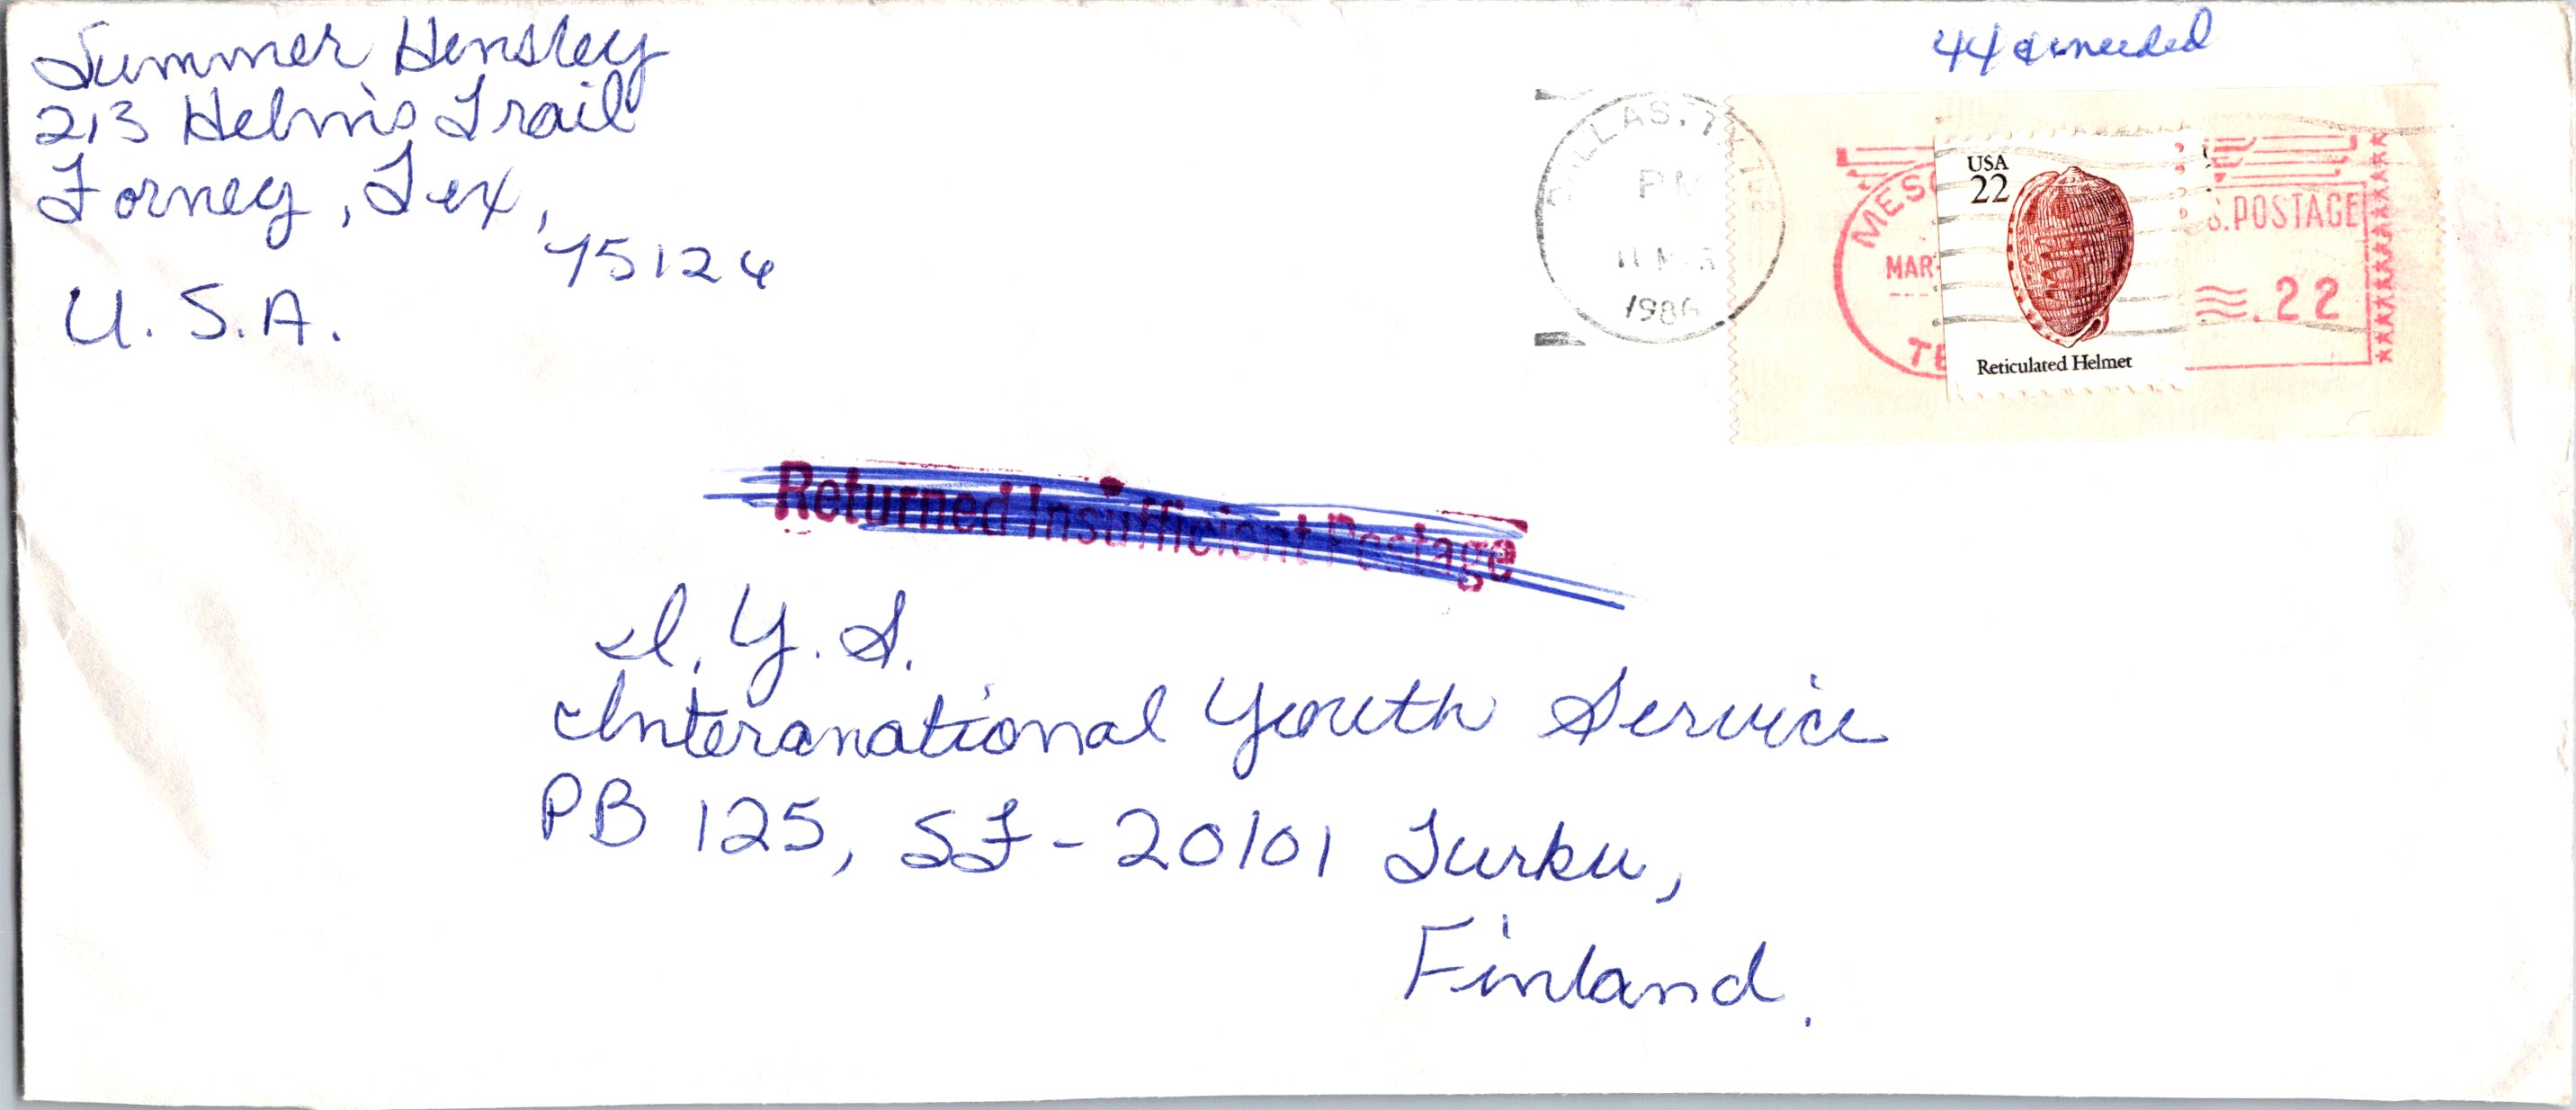 Summer Hensley
213 Helms Trail
Forney, Tex,
75126
U. S. A.
44¢ needed
DALLAS, TX 752
PM
11 MAR
1986
MES
MAR
TE
USA
22
Reticulated Helmet
S. POSTAGE
.22
Returned Insufficient Postage
I. Y. S.
Interanational Youth Service
PB 125, SF - 20101 Turku,
Finland.